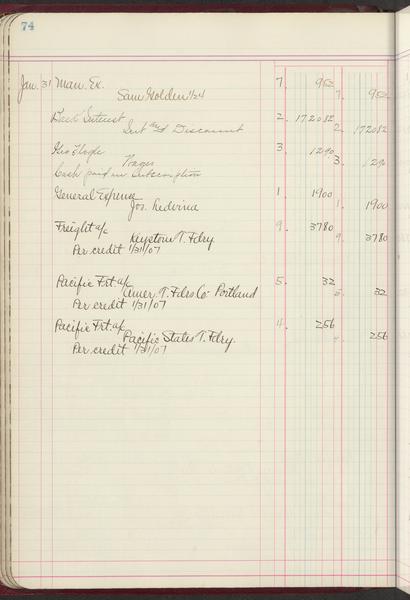 74
Jan. 31 Man. Ex. 7. 952
Sam Golden 1/24 7. 952
Interest 2. 172082
Int and Discount 2. 172082
Geo 3. 1290
Wages 3. 1290
Cash paid on Subscription
General Expense 1 1900
Jos. 1. 1900
Freight a/c 9. 3780
Keystone T. Fdry 9. 3780
Per credit 1/31/07
Pacific Frt. a/c 5. 32
Amer. T. Fdrs Co- Portland 5. 32
Per credit 1/31/07
Pacific Frt a/c 4. 256
Pacific States T. Fdry. 4. 256
Per. credit 1/31/07